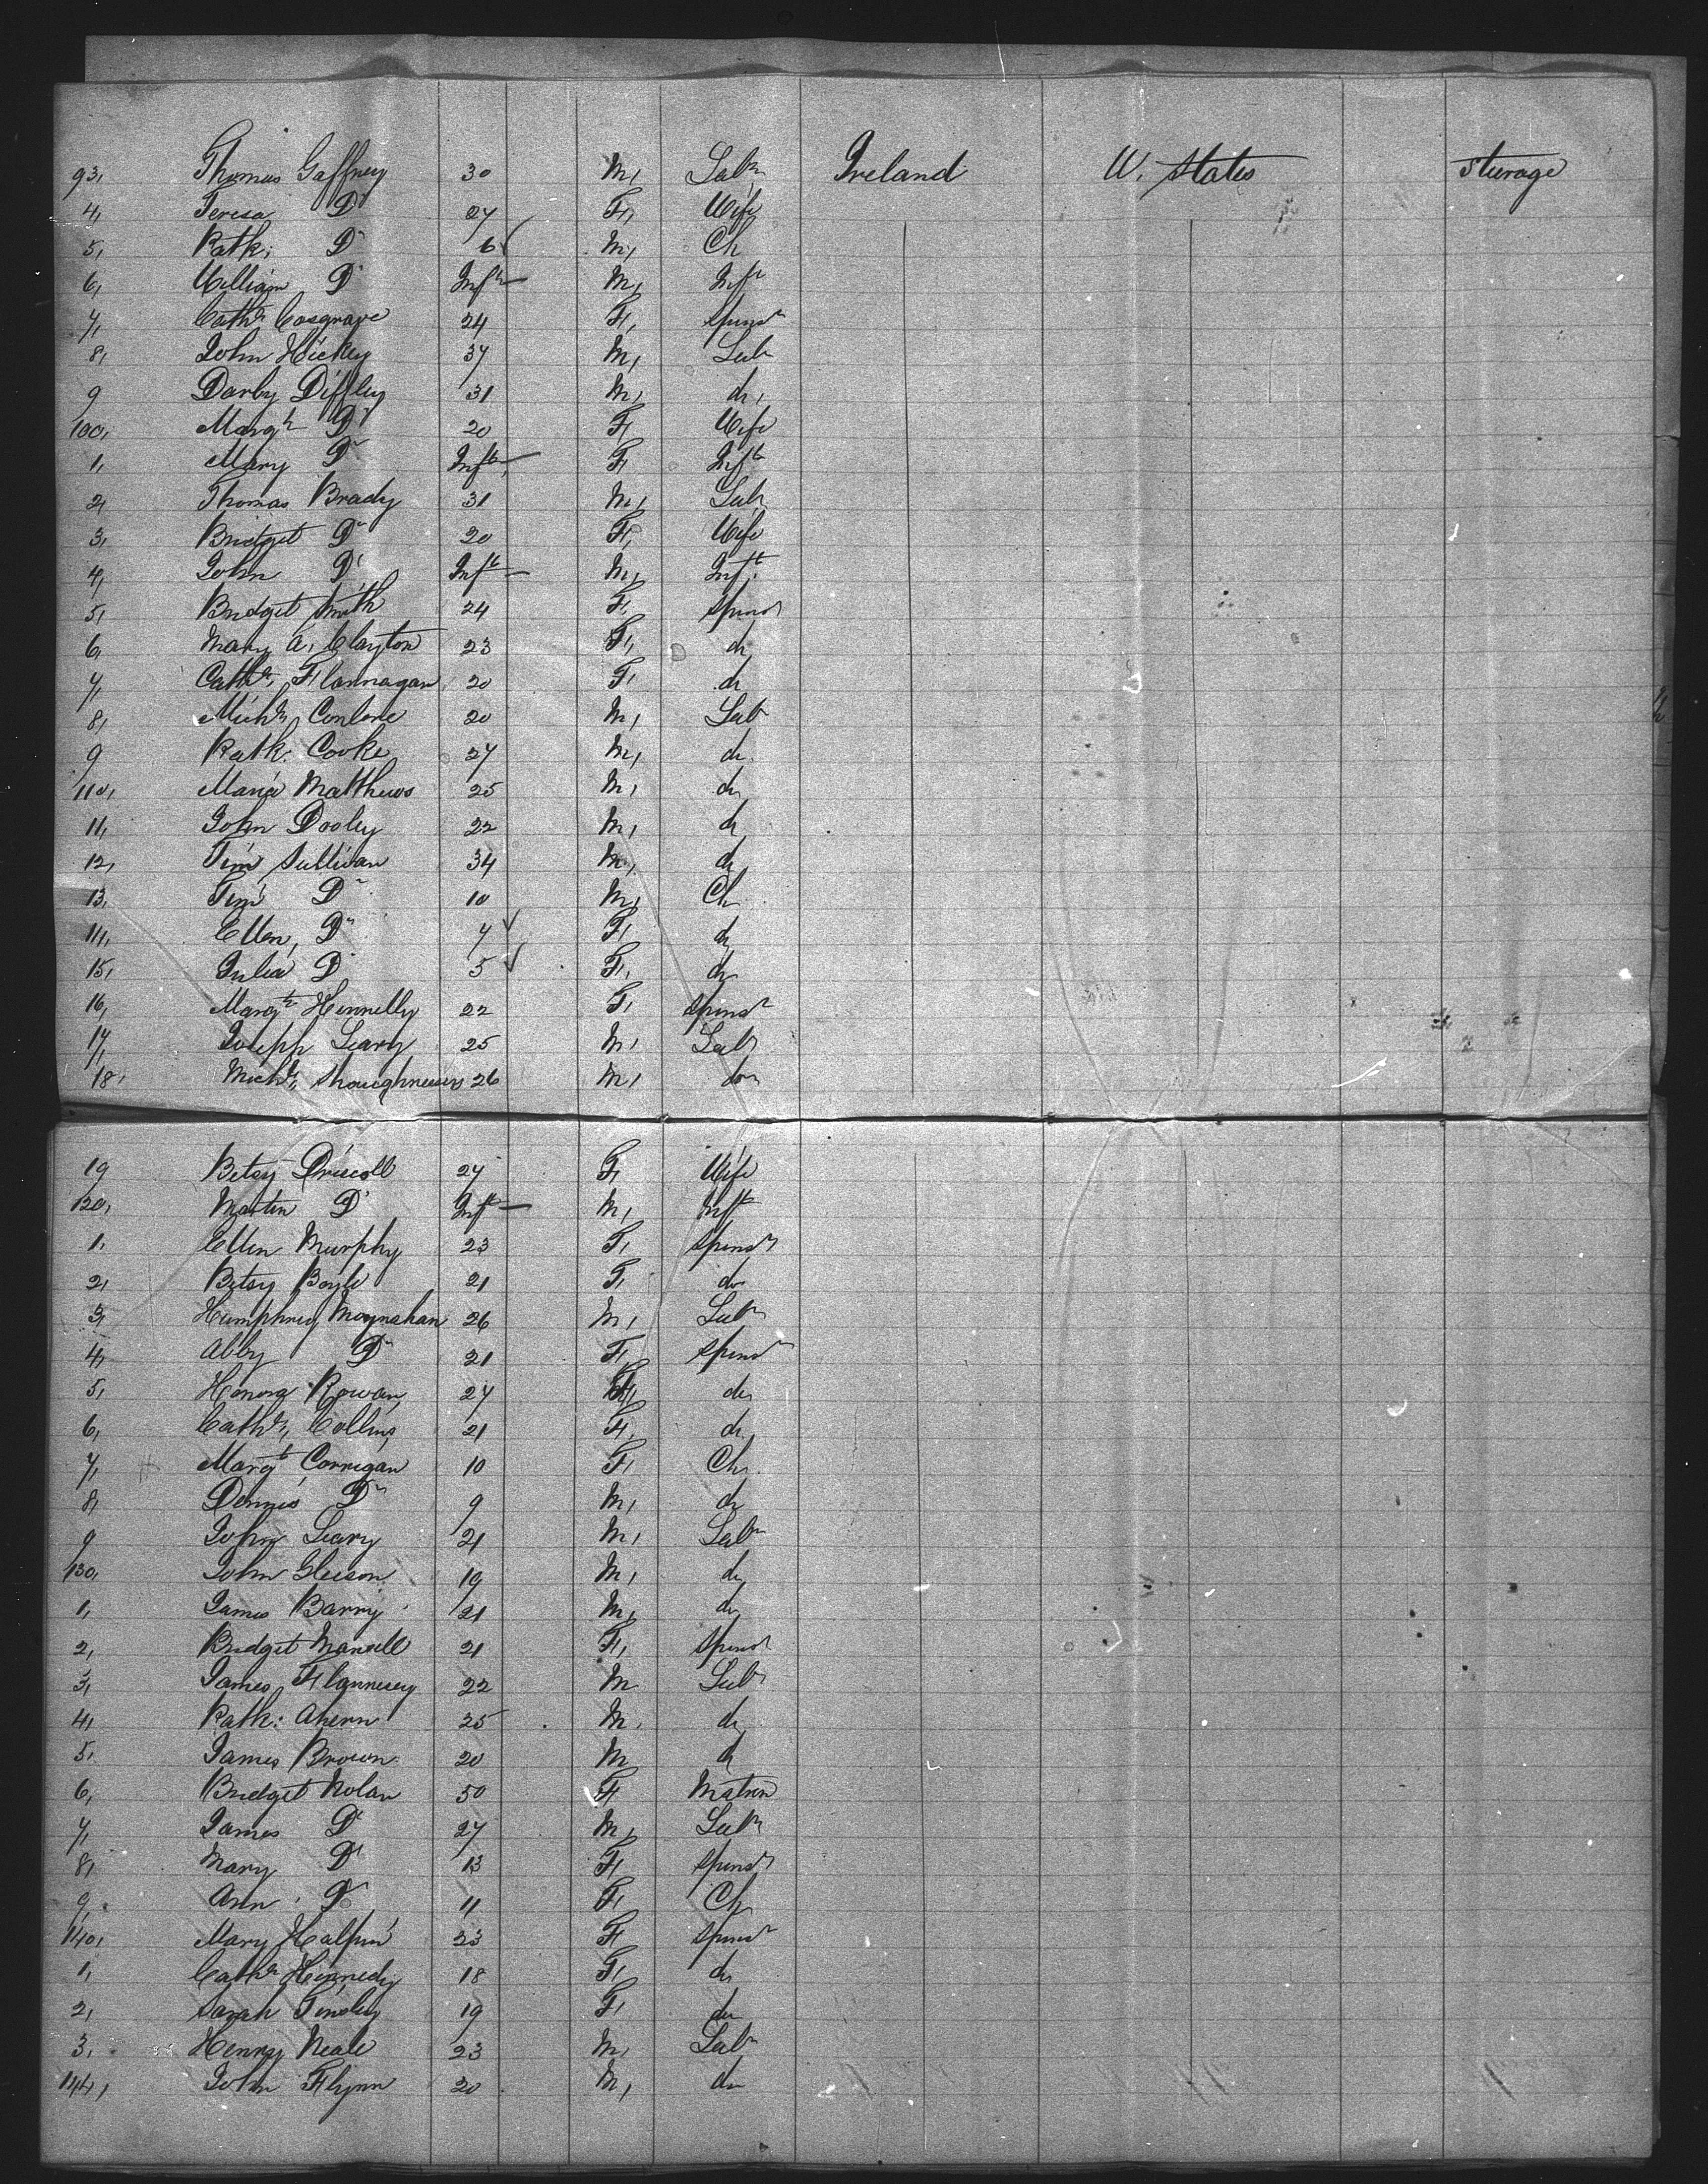 93, Thomas Gaffney 30 M, Labr Ireland U. States Steerage
4, Teresa Do 27 F, Wife
5, Patk: Do 6 M, Ch
6, William Do Inft M, Inft
7, Cathe Cosgrave 24 F, Spinsr
8, John Hickey 37 M, Lab
9 Darby Diffley 31 M, do,
100, Margt Do 20 F, Wife
1, Mary Do Inft, F, Inft
2, Thomas Brady 31 M, Labr
3, Bridget Do 20 F, Wife
4, John Do Inft M, Inft
5, Bridget Smith 24 F, Spinsr
6, Mary A, Clayton 23 F, do
7, Cathe, Flannagan 20 F, do
8, Michl, Conlane 20 M, Lab
9 Patk: Cooke 27 M, do
110, Maria Matthews 25 M, do
11, John Dooley 22 M, do
12, Tim Sullivan 34 M, do
13, Tim Do 10 M, Ch
14, Ellen, Do 7 F, do
15, Julia Do 5 F, do
16, Margt Hennelly 22 F, Spinsr
17, Joseph Leary 25 M, Labr
18, Michl, Shaughnessy 26 M, do
19 Betsy Driscoll 27 F, Wife
120, Martin Do Inft M, Inft
1, Ellen Murphy 23 F, Spinsr
2, Betsy Boyle 21 F, do
3, Humphrey Moynahan 26 M, Labr
4, Abby Do 21 F, Spinsr
5, Honora Rowan 27 F, do
6, Cathe, Collins 21 F, do
7, Margt Corrigan 10 F, Ch
8, Dennis Do 9 M, do
9 John Leary 21 M, Labr
130, John Gleeson 19 M, do
1, James Barry 21 M, do
2, Bridget Mansell 21 F, Spinsr
3, James Flannesey 22 M Labr
4, Patk: Ahern 25 M, do
5, James Brown 20 M do
6, Bridget Nolan 50 F Matron
7, James Do 27 M, Labr
8, Mary Do 13 F, Spinsr
9, Ann Do 11 F, Ch
140, Mary Halpin 23 F, Spinsr
1, Cathe Kennedy 18 F, do
2, Sarah Tinsley 19 F, do
3, Henry Neale 23 M, Labr
144, John Flynn 20 M, do